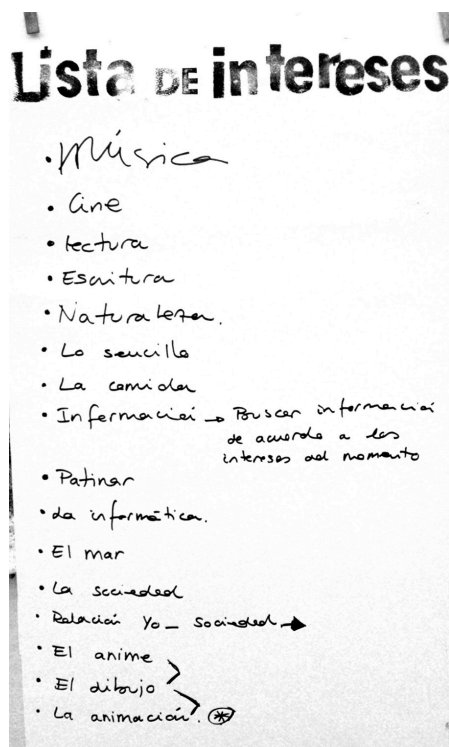 Lista DE intereses
• Música
• Cine
• Lectura
• Escritura
• Naturaleza.
• Lo sencillo
• La comida
• Información → Buscar información
de acuerdo a los
intereses del momento
• Patinar
• La informática.
• El mar
• La sociedad
• Relación Yo – sociedad →
• El anime
• El dibujo
• La animación. ⊛